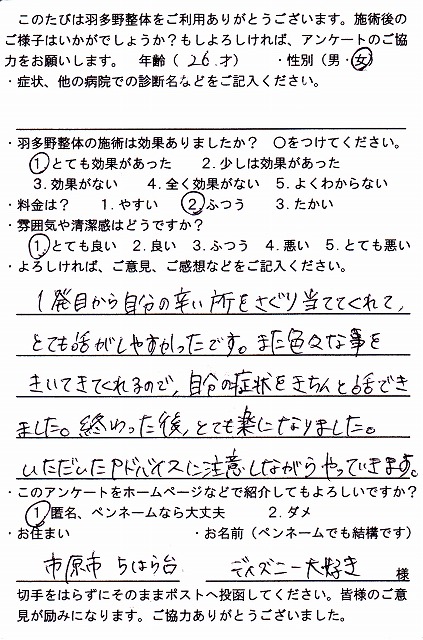 このたびは羽多野整体をご利用ありがとうございます。施術後の
ご様子はいかがでしょうか？もしよろしければ、アンケートのご協
力をお願いします。　年齢（ 26 才）　・性別（男・女）
・症状、他の病院での診断名などをご記入ください。
・羽多野整体の施術は効果ありましたか？　○をつけてください。
1 とても効果があった　2. 少しは効果があった
3. 効果がない　4. 全く効果がない　5. よくわからない
・料金は？　1. やすい　2. ふつう　3. たかい
・雰囲気や清潔感はどうですか？
1. とても良い　2. 良い　3. ふつう　4. 悪い　5. とても悪い
・よろしければ、ご意見、ご感想などをご記入ください。
1発目から自分の辛い所をさぐり当ててくれて、
とても話がしやすかったです。また色々な事を
きいてきてくれるので、自分の症状をきちんと話でき
ました。終わった後、とても楽になりました。
いただいたアドバイスに注意しながらやっていきます。
・このアンケートをホームページなどで紹介してもよろしいですか？
1 匿名、ペンネームなら大丈夫　2. ダメ
・お住まい　・お名前（ペンネームでも結構です）
市原市 ちはら台　ディズニー大好き 様
切手をはらずにそのままポストへ投函してください。皆様のご意
見が励みになります。ご協力ありがとうございました。